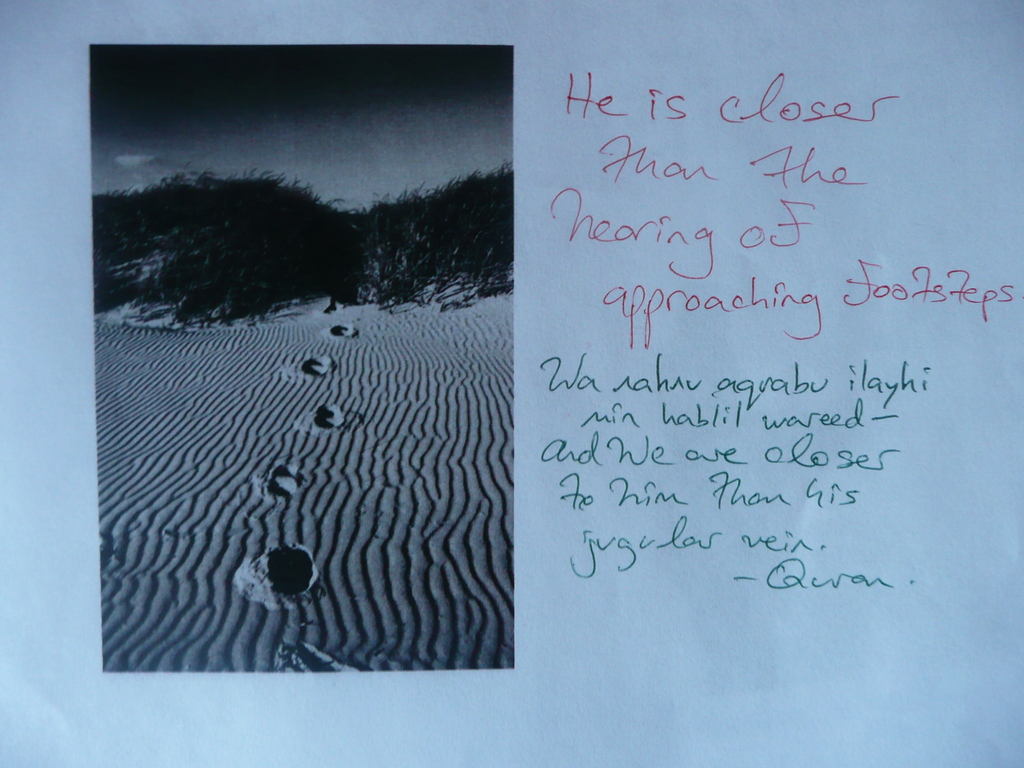 He is closer
than the
hearing of
approaching footsteps.
Wa nahnu aqrabu ilayhi
min hablil wareed –
and We are closer
to him than his
jugular vein.
– Quran.